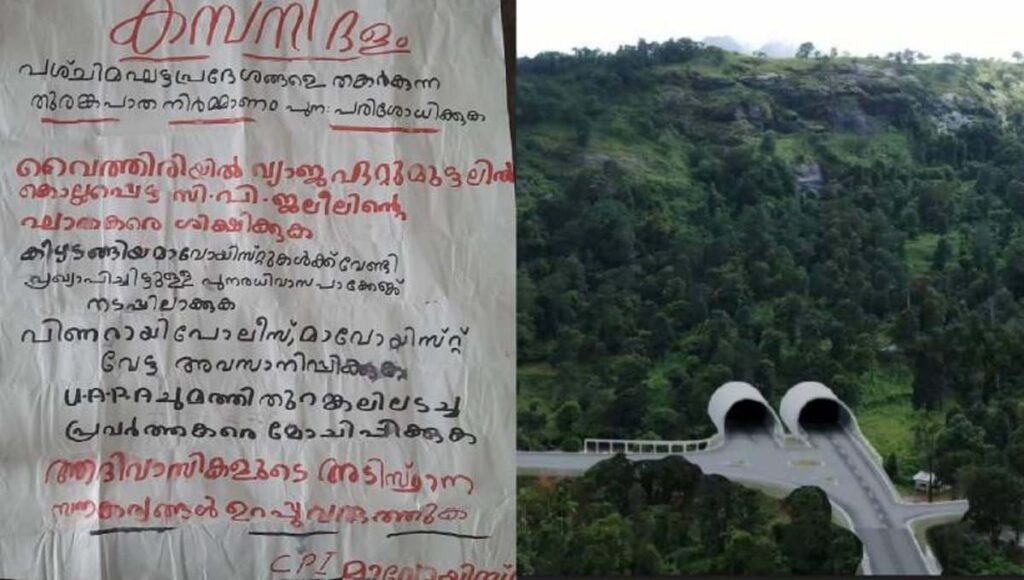 കമ്പനിദളം
പശ്ചിമഘട്ടപ്രദേശങ്ങളെ തകർക്കുന്ന
തുരങ്കപാത നിർമ്മാണം പുന:പരിശോധിക്കുക
വൈത്തിരിയിൽ വ്യാജഏറ്റുമുട്ടലിൽ
കൊല്ലപ്പെട്ട സി.പി.ജലീലിന്റെ
ഘാതകരെ ശിക്ഷിക്കുക
കീഴടങ്ങിയമാവോയിസ്റ്റുകൾക്ക് വേണ്ടി
പ്രഖ്യാപിച്ചിട്ടുള്ള പുനരധിവാസപാക്കേജ്
നടപ്പിലാക്കുക
പിണറായിപോലീസ്, മാവോയിസ്റ്റ്
വേട്ട അവസാനിപ്പിക്കുക
U.A.P.A ചുമത്തി തുറങ്കലിലടച്ച
പ്രവർത്തകരെ മോചിപ്പിക്കുക
ആദിവാസികളുടെ അടിസ്ഥാന
സൗകര്യങ്ങൾ ഉറപ്പുവരുത്തുക
CPI മാവോയിസ്റ്റ്